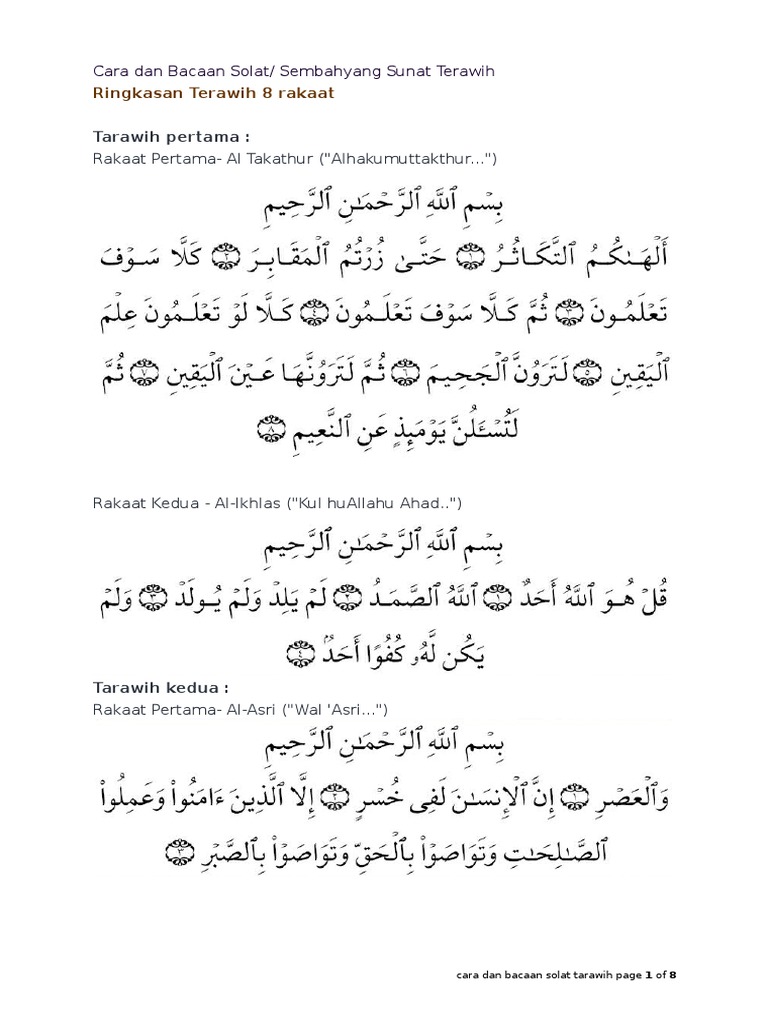 Cara dan Bacaan Solat/ Sembahyang Sunat Terawih
Ringkasan Terawih 8 rakaat
Tarawih pertama :
Rakaat Pertama- Al Takathur ("Alhakumuttakthur...")
بِسۡمِ ٱللَّهِ ٱلرَّحۡمَـٰنِ ٱلرَّحِيمِ
أَلۡهَـٰكُمُ ٱلتَّكَاثُرُ ﴿١﴾ حَتَّىٰ زُرۡتُمُ ٱلۡمَقَابِرَ ﴿٢﴾ كَلَّا سَوۡفَ
تَعۡلَمُونَ ﴿٣﴾ ثُمَّ كَلَّا سَوۡفَ تَعۡلَمُونَ ﴿٤﴾ كَلَّا لَوۡ تَعۡلَمُونَ عِلۡمَ
ٱلۡيَقِينِ ﴿٥﴾ لَتَرَوُنَّ ٱلۡجَحِيمَ ﴿٦﴾ ثُمَّ لَتَرَوُنَّهَا عَيۡنَ ٱلۡيَقِينِ ﴿٧﴾ ثُمَّ
لَتُسۡـَٔلُنَّ يَوۡمَٮِٕذٍ عَنِ ٱلنَّعِيمِ ﴿٨﴾
Rakaat Kedua - Al-Ikhlas ("Kul huAllahu Ahad..")
بِسۡمِ ٱللَّهِ ٱلرَّحۡمَـٰنِ ٱلرَّحِيمِ
قُلۡ هُوَ ٱللَّهُ أَحَدٌ ﴿١﴾ ٱللَّهُ ٱلصَّمَدُ ﴿٢﴾ لَمۡ يَلِدۡ وَلَمۡ يُولَدۡ ﴿٣﴾ وَلَمۡ
يَكُن لَّهُۥ ڪُفُوًا أَحَدٌۢ ﴿٤﴾
Tarawih kedua :
Rakaat Pertama- Al-Asri ("Wal 'Asri...")
بِسۡمِ ٱللَّهِ ٱلرَّحۡمَـٰنِ ٱلرَّحِيمِ
وَٱلۡعَصۡرِ ﴿١﴾ إِنَّ ٱلۡإِنسَـٰنَ لَفِى خُسۡرٍ ﴿٢﴾ إِلَّا ٱلَّذِينَ ءَامَنُواْ وَعَمِلُواْ
ٱلصَّـٰلِحَـٰتِ وَتَوَاصَوۡاْ بِٱلۡحَقِّ وَتَوَاصَوۡاْ بِٱلصَّبۡرِ ﴿٣﴾
cara dan bacaan solat tarawih page 1 of 8